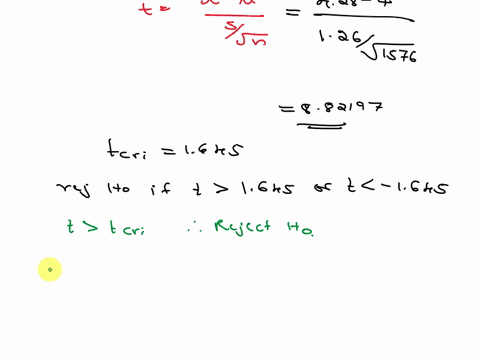 t = x̄ - μ / s/√n = 4.28 - 4 / 1.26/√1576
= 8.82197
tcri = 1.645
rej Ho if t > 1.645 or t < -1.645
t > tcri ∴ Reject Ho.